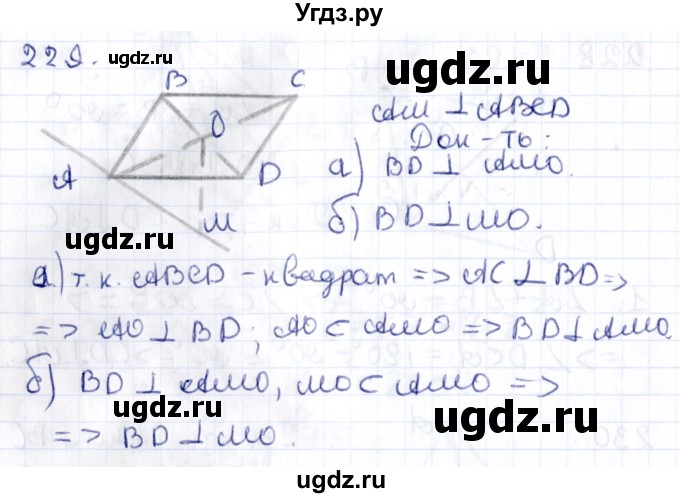 Угдз.ру
229.
ugdz.ru
B
C
ugdz.ru
O
AM ⊥ ABCD
Док-ть:
A
D
а) BD ⊥ AMO.
M
б) BD ⊥ MO.
ugdz.ru
а) т.к. ABCD - квадрат => AC ⊥ BD =>
=> AO ⊥ BD; AO ⊂ AMO => BD ⊥ AMO.
ugdz.ru
ugdz.ru
б) BD ⊥ AMO, MO ⊂ AMO =>
ugdz.ru
=> BD ⊥ MO.
ugdz.ru